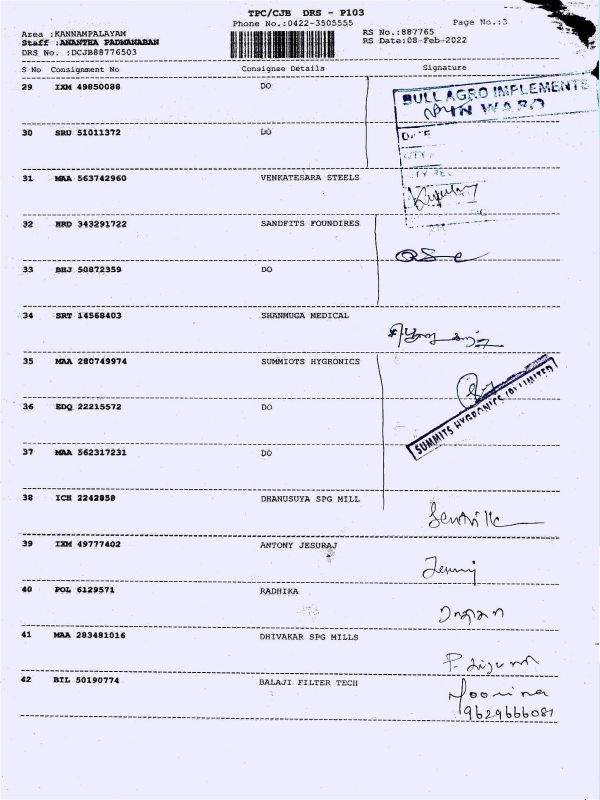 TPC/CJB DRS - P103
Phone No.:0422-3505555 Page No.:3
Area :KANNAMPALAYAM RS No.:887765
Staff :ANANTHA PADMANABAN RS Date:08-Feb-2022
DRS No. :DCJB88776503
S No Consignment No Consignee Details Signature
29 IXM 49850088 DO
BULL AGRO IMPLEMENTS
30 SRU 51011372 DO
31 MAA 563742960 VENKATESARA STEELS
32 HRD 343291722 SANDFITS FOUNDIRES
33 BHJ 50872359 DO
34 SRT 14568403 SHANMUGA MEDICAL
35 MAA 280749974 SUMMIOTS HYGRONICS
SUMMITS HYGRONICS (P) LIMITED
36 EDQ 22215572 DO
37 MAA 562317231 DO
38 ICH 2242858 DHANUSUYA SPG MILL
39 IXM 49777402 ANTONY JESURAJ
40 POL 6129571 RADHIKA
41 MAA 283481016 DHIVAKAR SPG MILLS
42 BIL 50190774 BALAJI FILTER TECH
9629666081